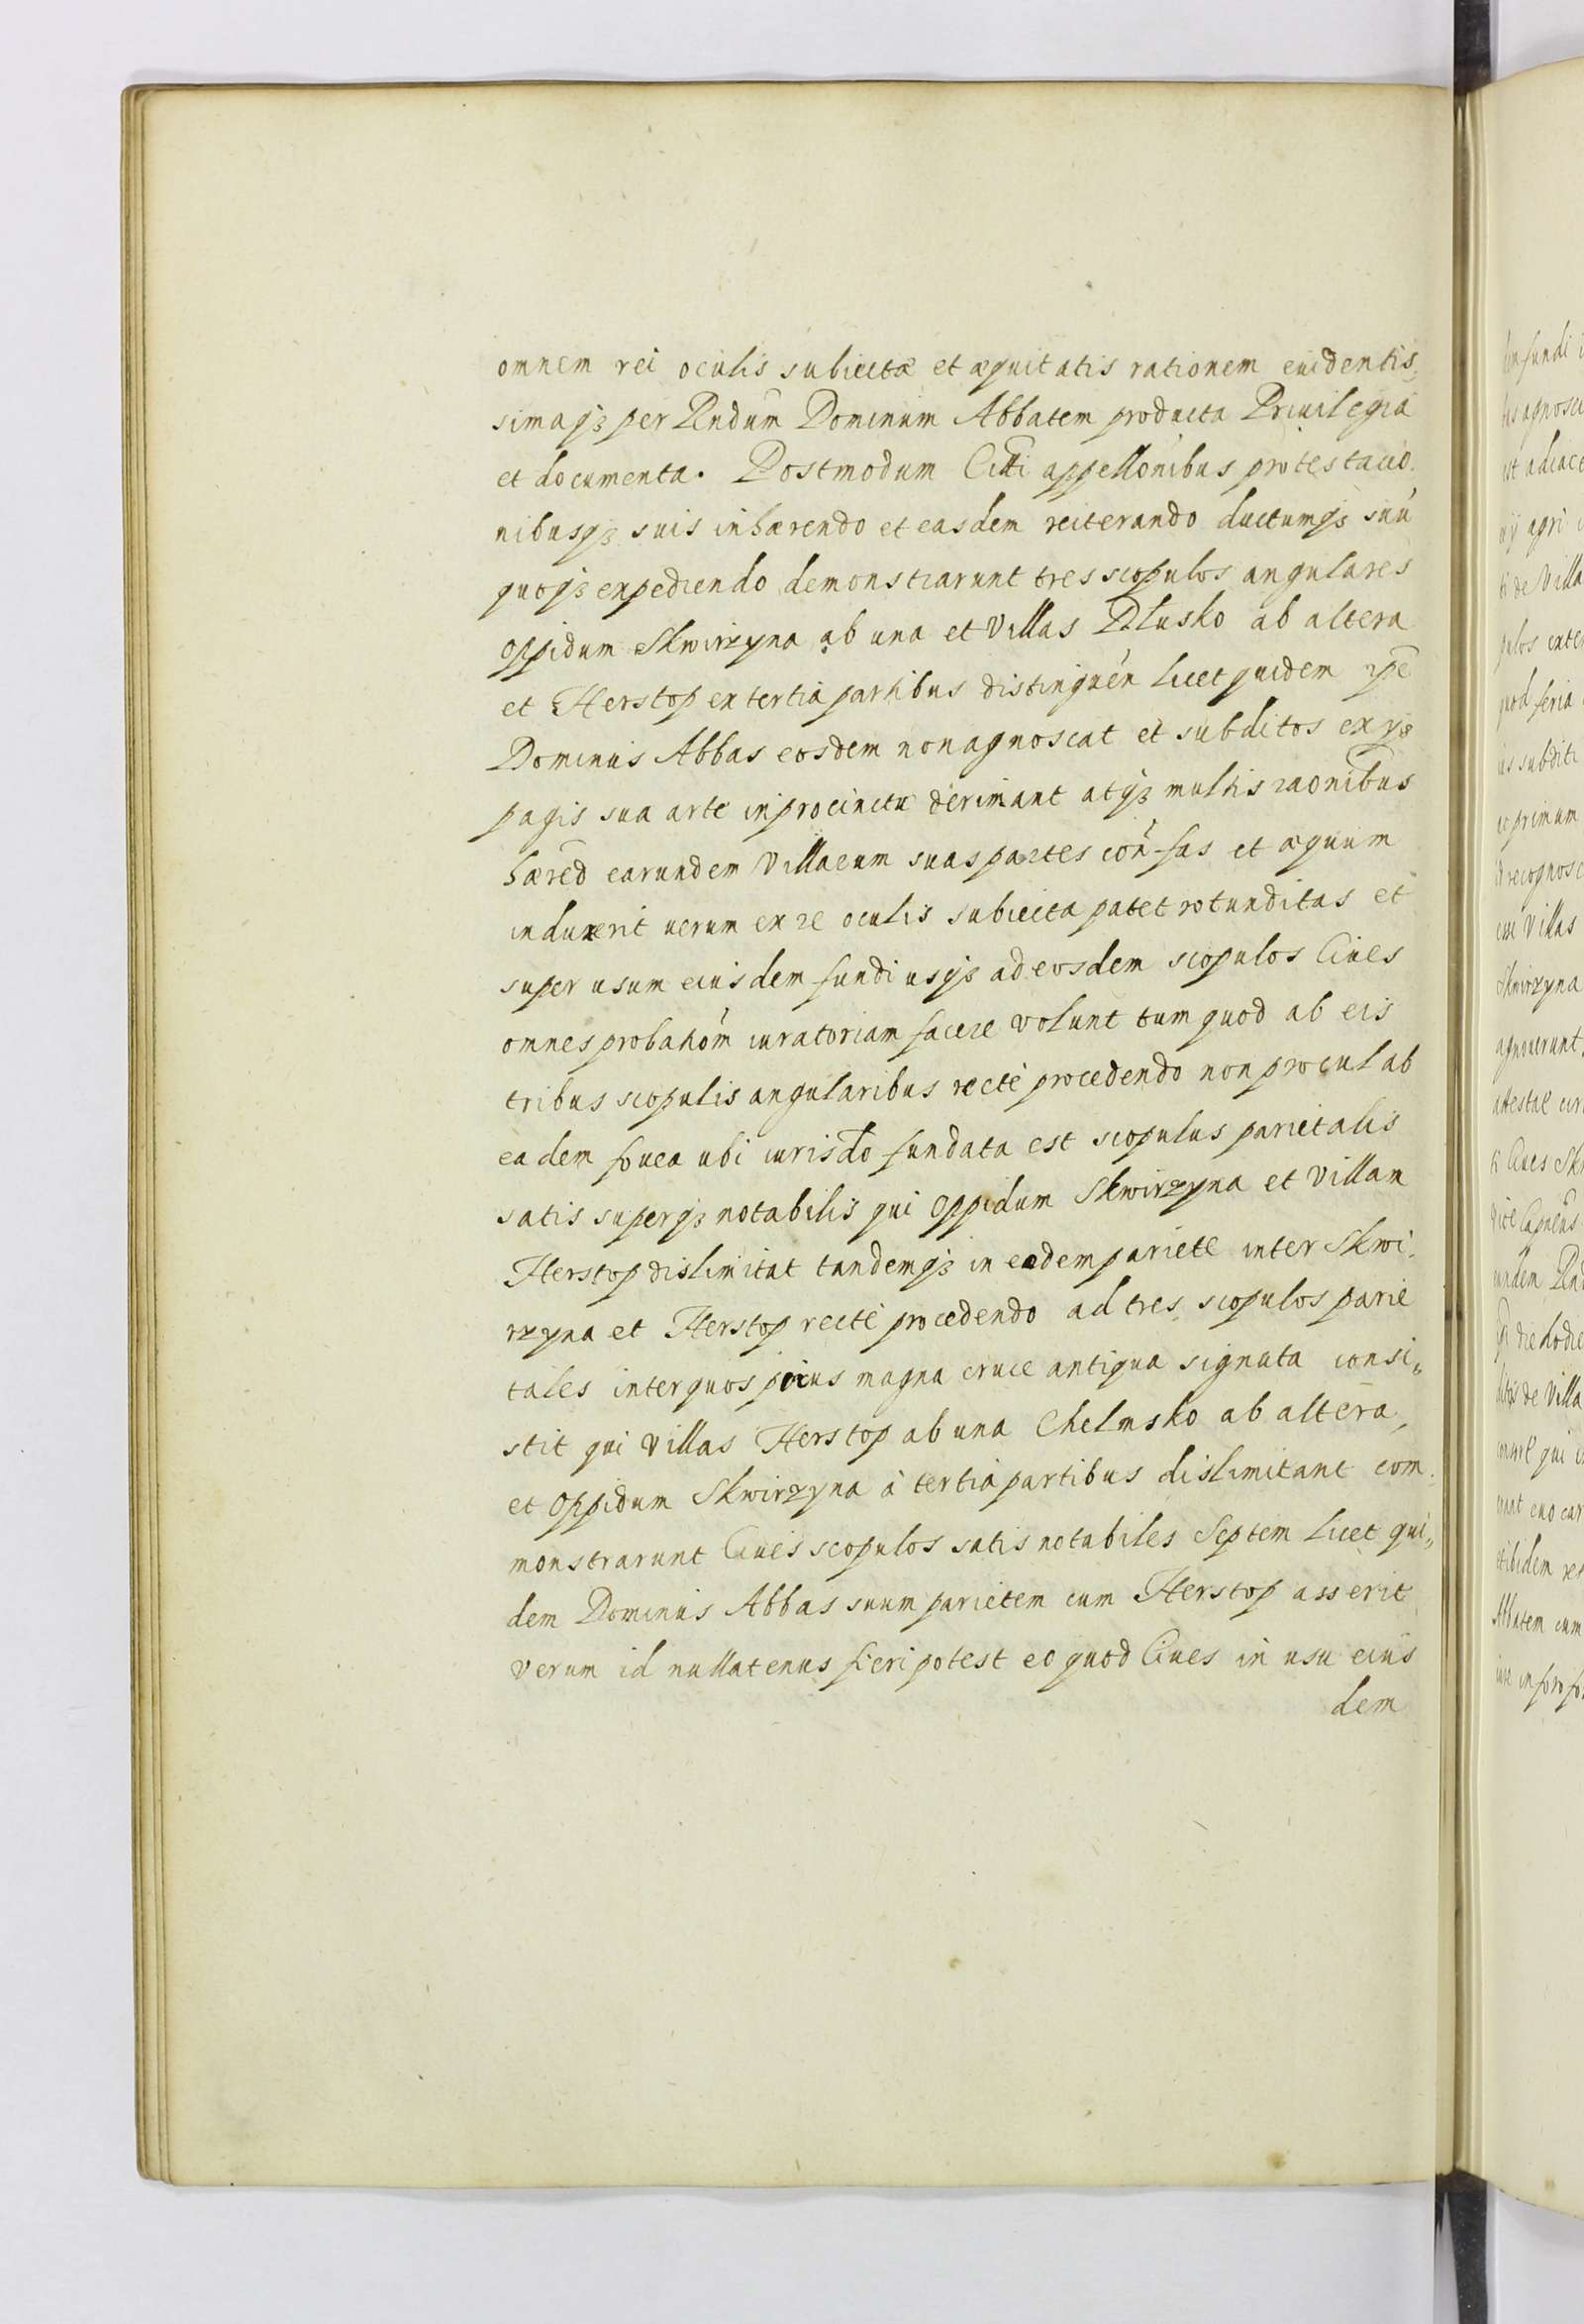 omnem rei oculis subiectæ et æquitatis rationem euidentis,
simaqꝫ per Rndum Dominum Abbatem producta Priuilegia
et documenta. Postmodum appellonibus protestatio,
nibusqꝫ suis inhærendo et easdem reiterando ductumqꝫ suū
quoqꝫ expediendo demonstrarunt tres scopulos angulares
oppidum Skwirzyna ab una et Villas Dlusko ab altera
et Herstop ex tertia partibus distinguen̄ licet quidem ipē
Dominus Abbas eosdem non agnoscat et subditos ex ijs
pagis sua arte in procinctu derimant atqꝫ multis raonibus
hæred earundem Villaeum suas partes con fas et æquum
induxerit uerum ex re oculis subiecta patet rotunditas et
super usum eiusdem fundi usqꝫ ad eosdem scopulos Ciues
omnes probatiom iuratoriam facere volunt tum quod ab eis
tribus scopulis angularibus rectè procedendo non procul ab
eadem fouea ubi iurisdo fundata est scopulus parietalis
satis superqꝫ notabilis qui Oppidum Skwirzyna et Villam
Herstop dislimitat tandemqꝫ in eadem pariete inter Skwi,
rzyna et Herstop rectè procedendo ad tres scopulos parie
tales inter quos picus magna cruce antiqua signata consi„
stit qui Villas Herstop ab una Chelmsko ab altera,
et Oppidum Skwirzyna à tertia partibus dislimitant com,
monstrarunt Ciues scopulos satis notabiles Septem licet qui„
dem Dominus Abbas suum parietem cum Herstop asserit
verum id nullatenus fieri potest eo quod Ciues in usu eius
dem